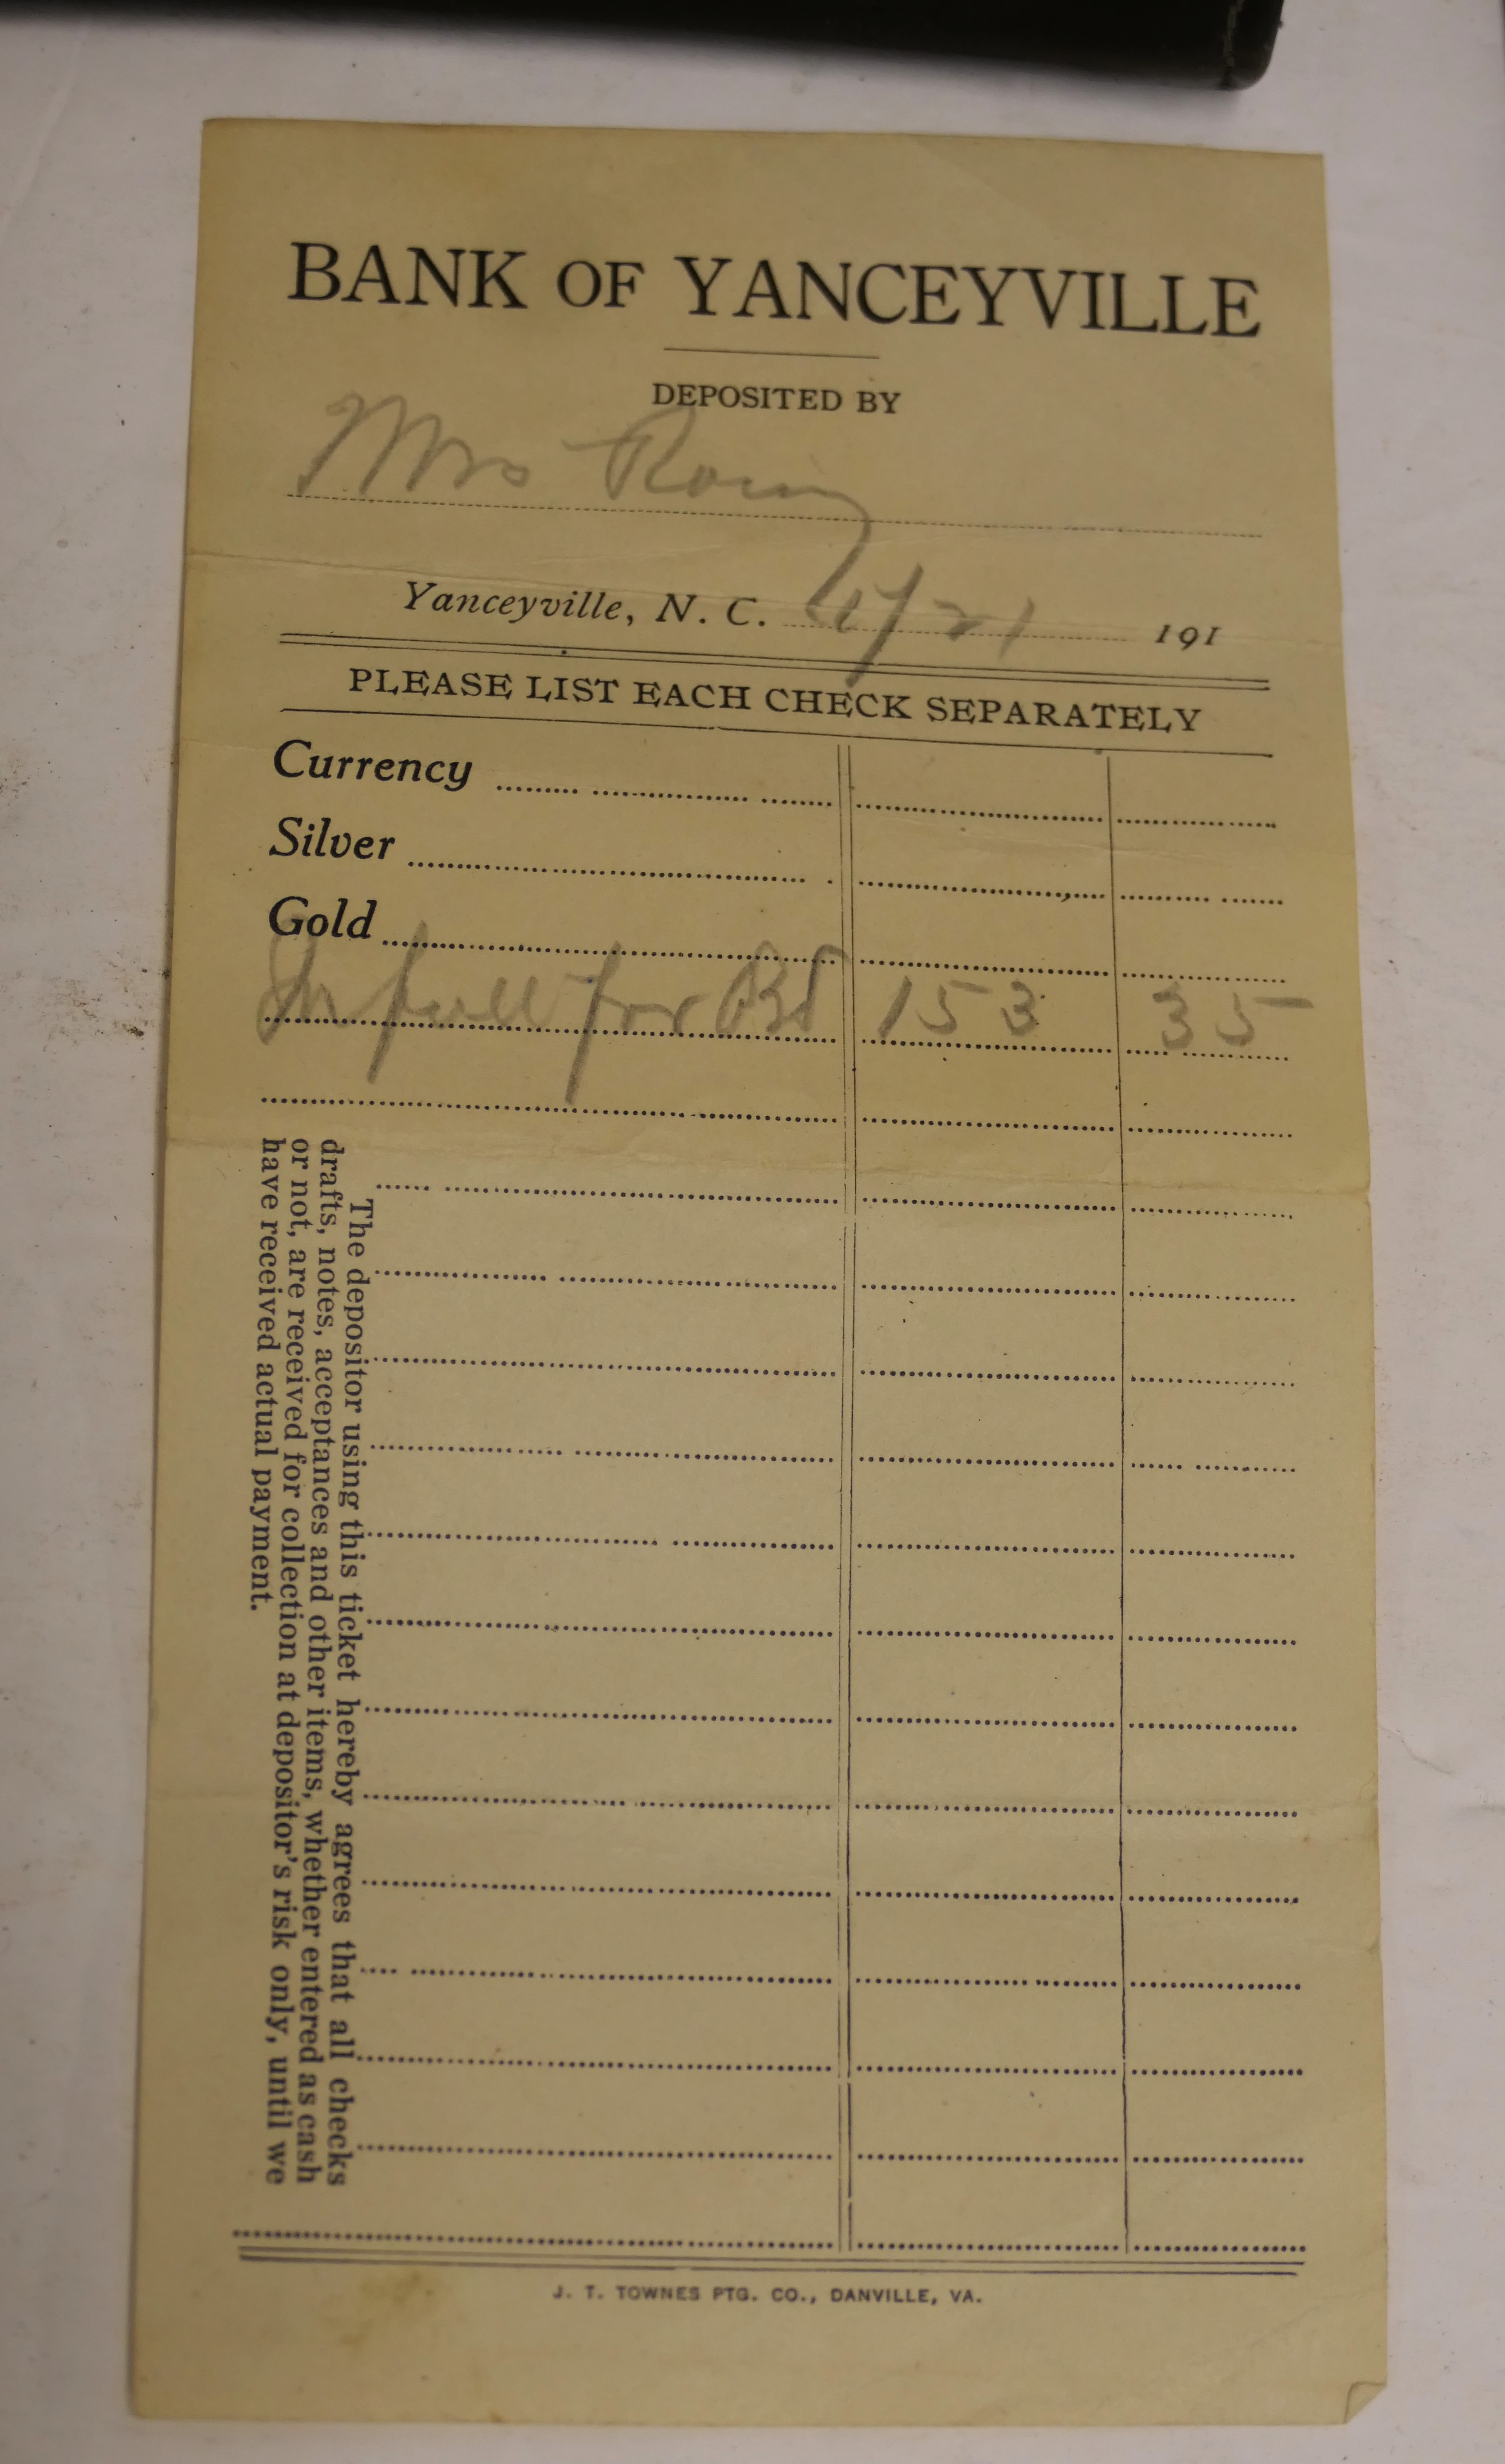 BANK OF YANCEYVILLE
DEPOSITED BY
Mrs
Yanceyville, N. C. 4/21 191
PLEASE LIST EACH CHECK SEPARATELY
Currency
Silver
Gold
In full for Bd 153 35
The depositor using this ticket hereby agrees that all checks
drafts, notes, acceptances and other items, whether entered as cash
or not, are received for collection at depositor's risk only, until we
have received actual payment.
J. T. TOWNES PTG. CO., DANVILLE, VA.